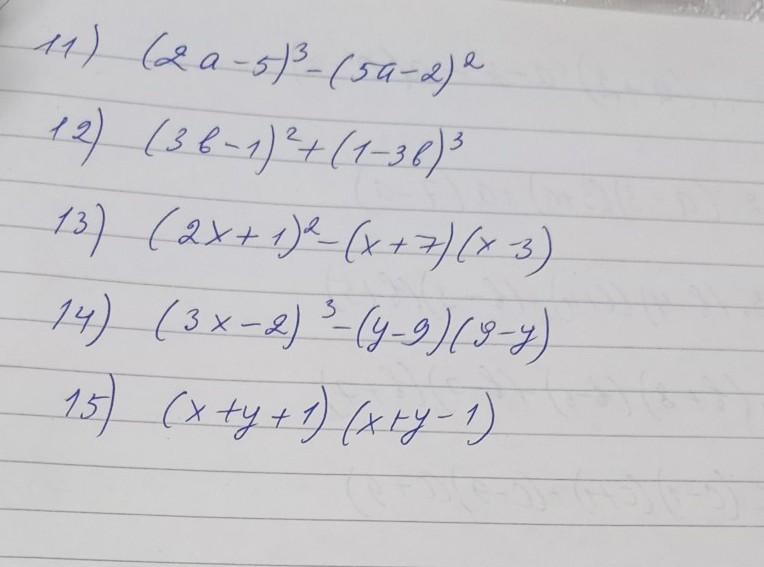 11) (2a-5)³-(5a-2)²
12) (3b-1)²+(1-3b)³
13) (2x+1)²-(x+7)(x-3)
14) (3x-2)³-(y-9)(9-y)
15) (x+y+1)(x+y-1)